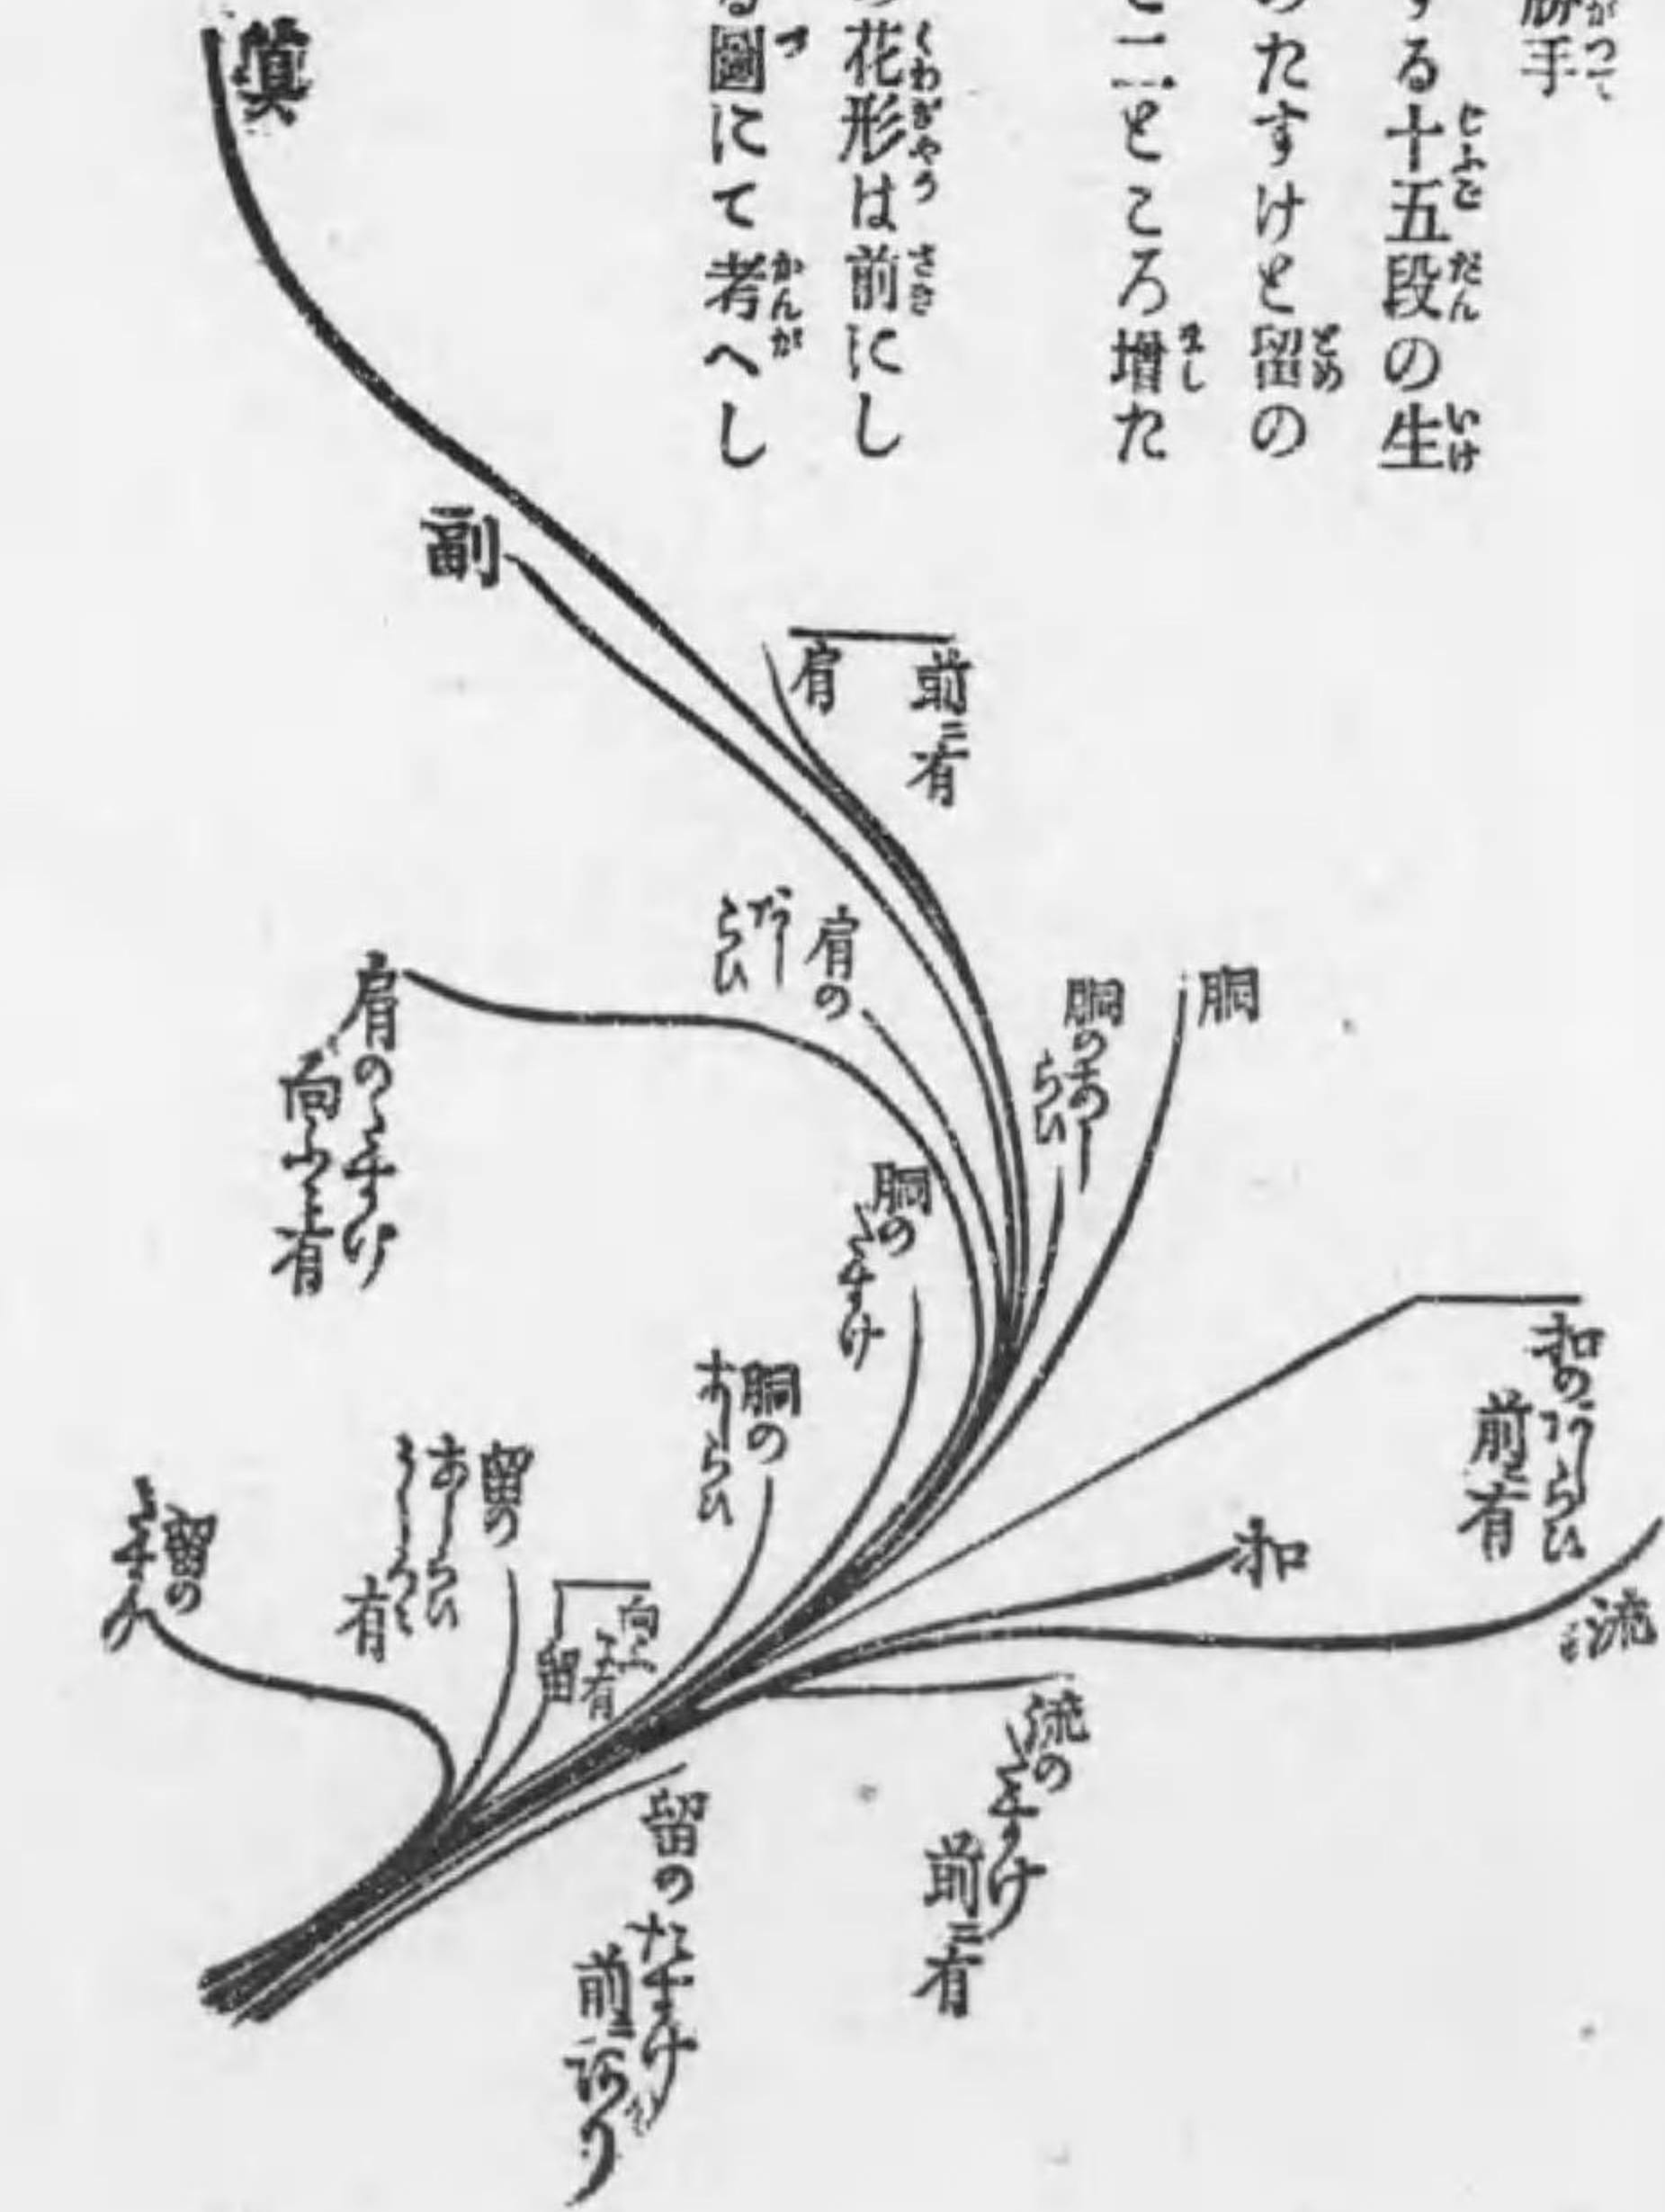 勝手
する十五段の生
のたすけと留の
と二ところ増た
の花形は前にし
る圖にて考へし
眞
副
肩
前ニ有
肩の
あしらひ
肩のたすけ
向ふニ有
胴
胴のあしらひ
胴のたすけ
胴の
あしらひ
和のあしらひ
前ニ有
和
流
流のたすけ
前ニ有
留のたすけ
前ニあり
向ふ
に有
留
留の
あしらひ
うしろニ
有
留の
たすけ